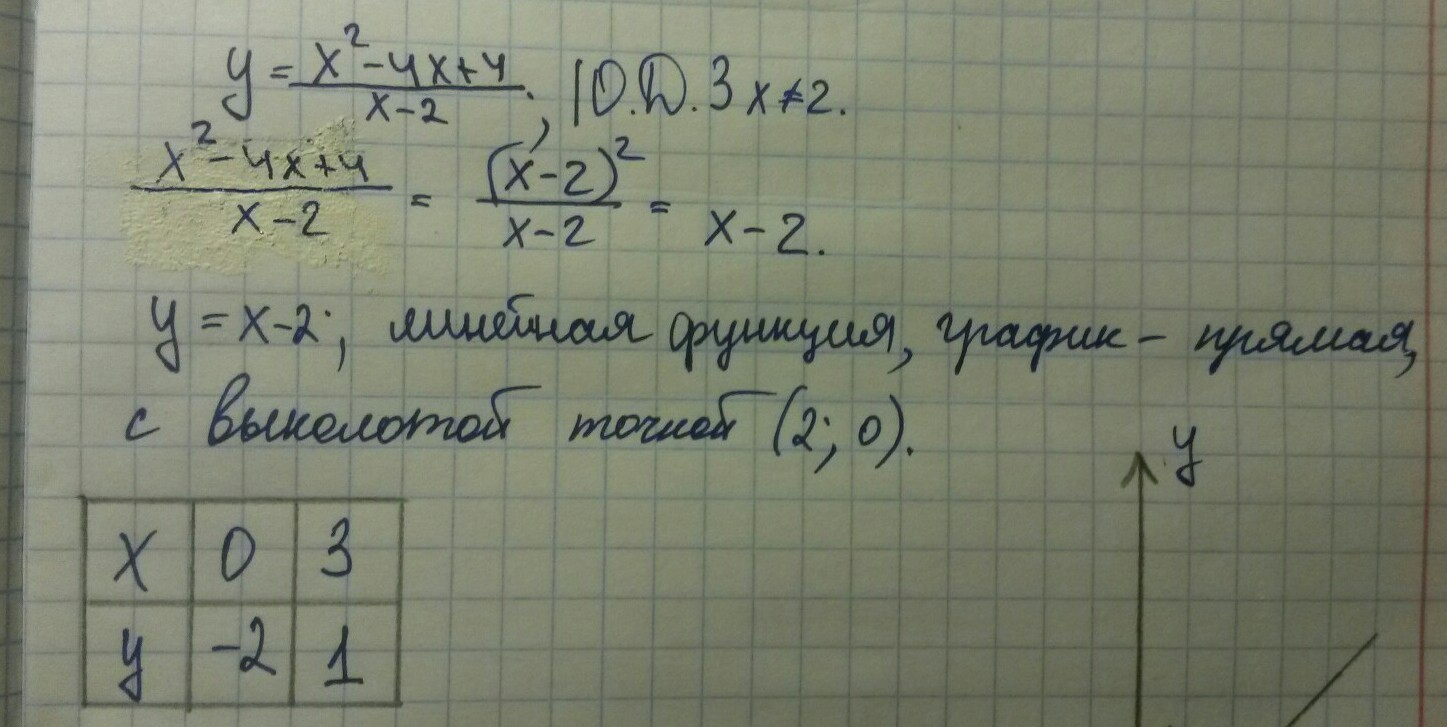 y = x²-4x+4 / x-2 ; | О.D.З x≠2.
x²-4x+4 / x-2 = (x-2)² / x-2 = x-2.
y = x-2; линейная функция, график - прямая,
с выколотой точкой (2; 0).
y
x 0 3
y -2 1